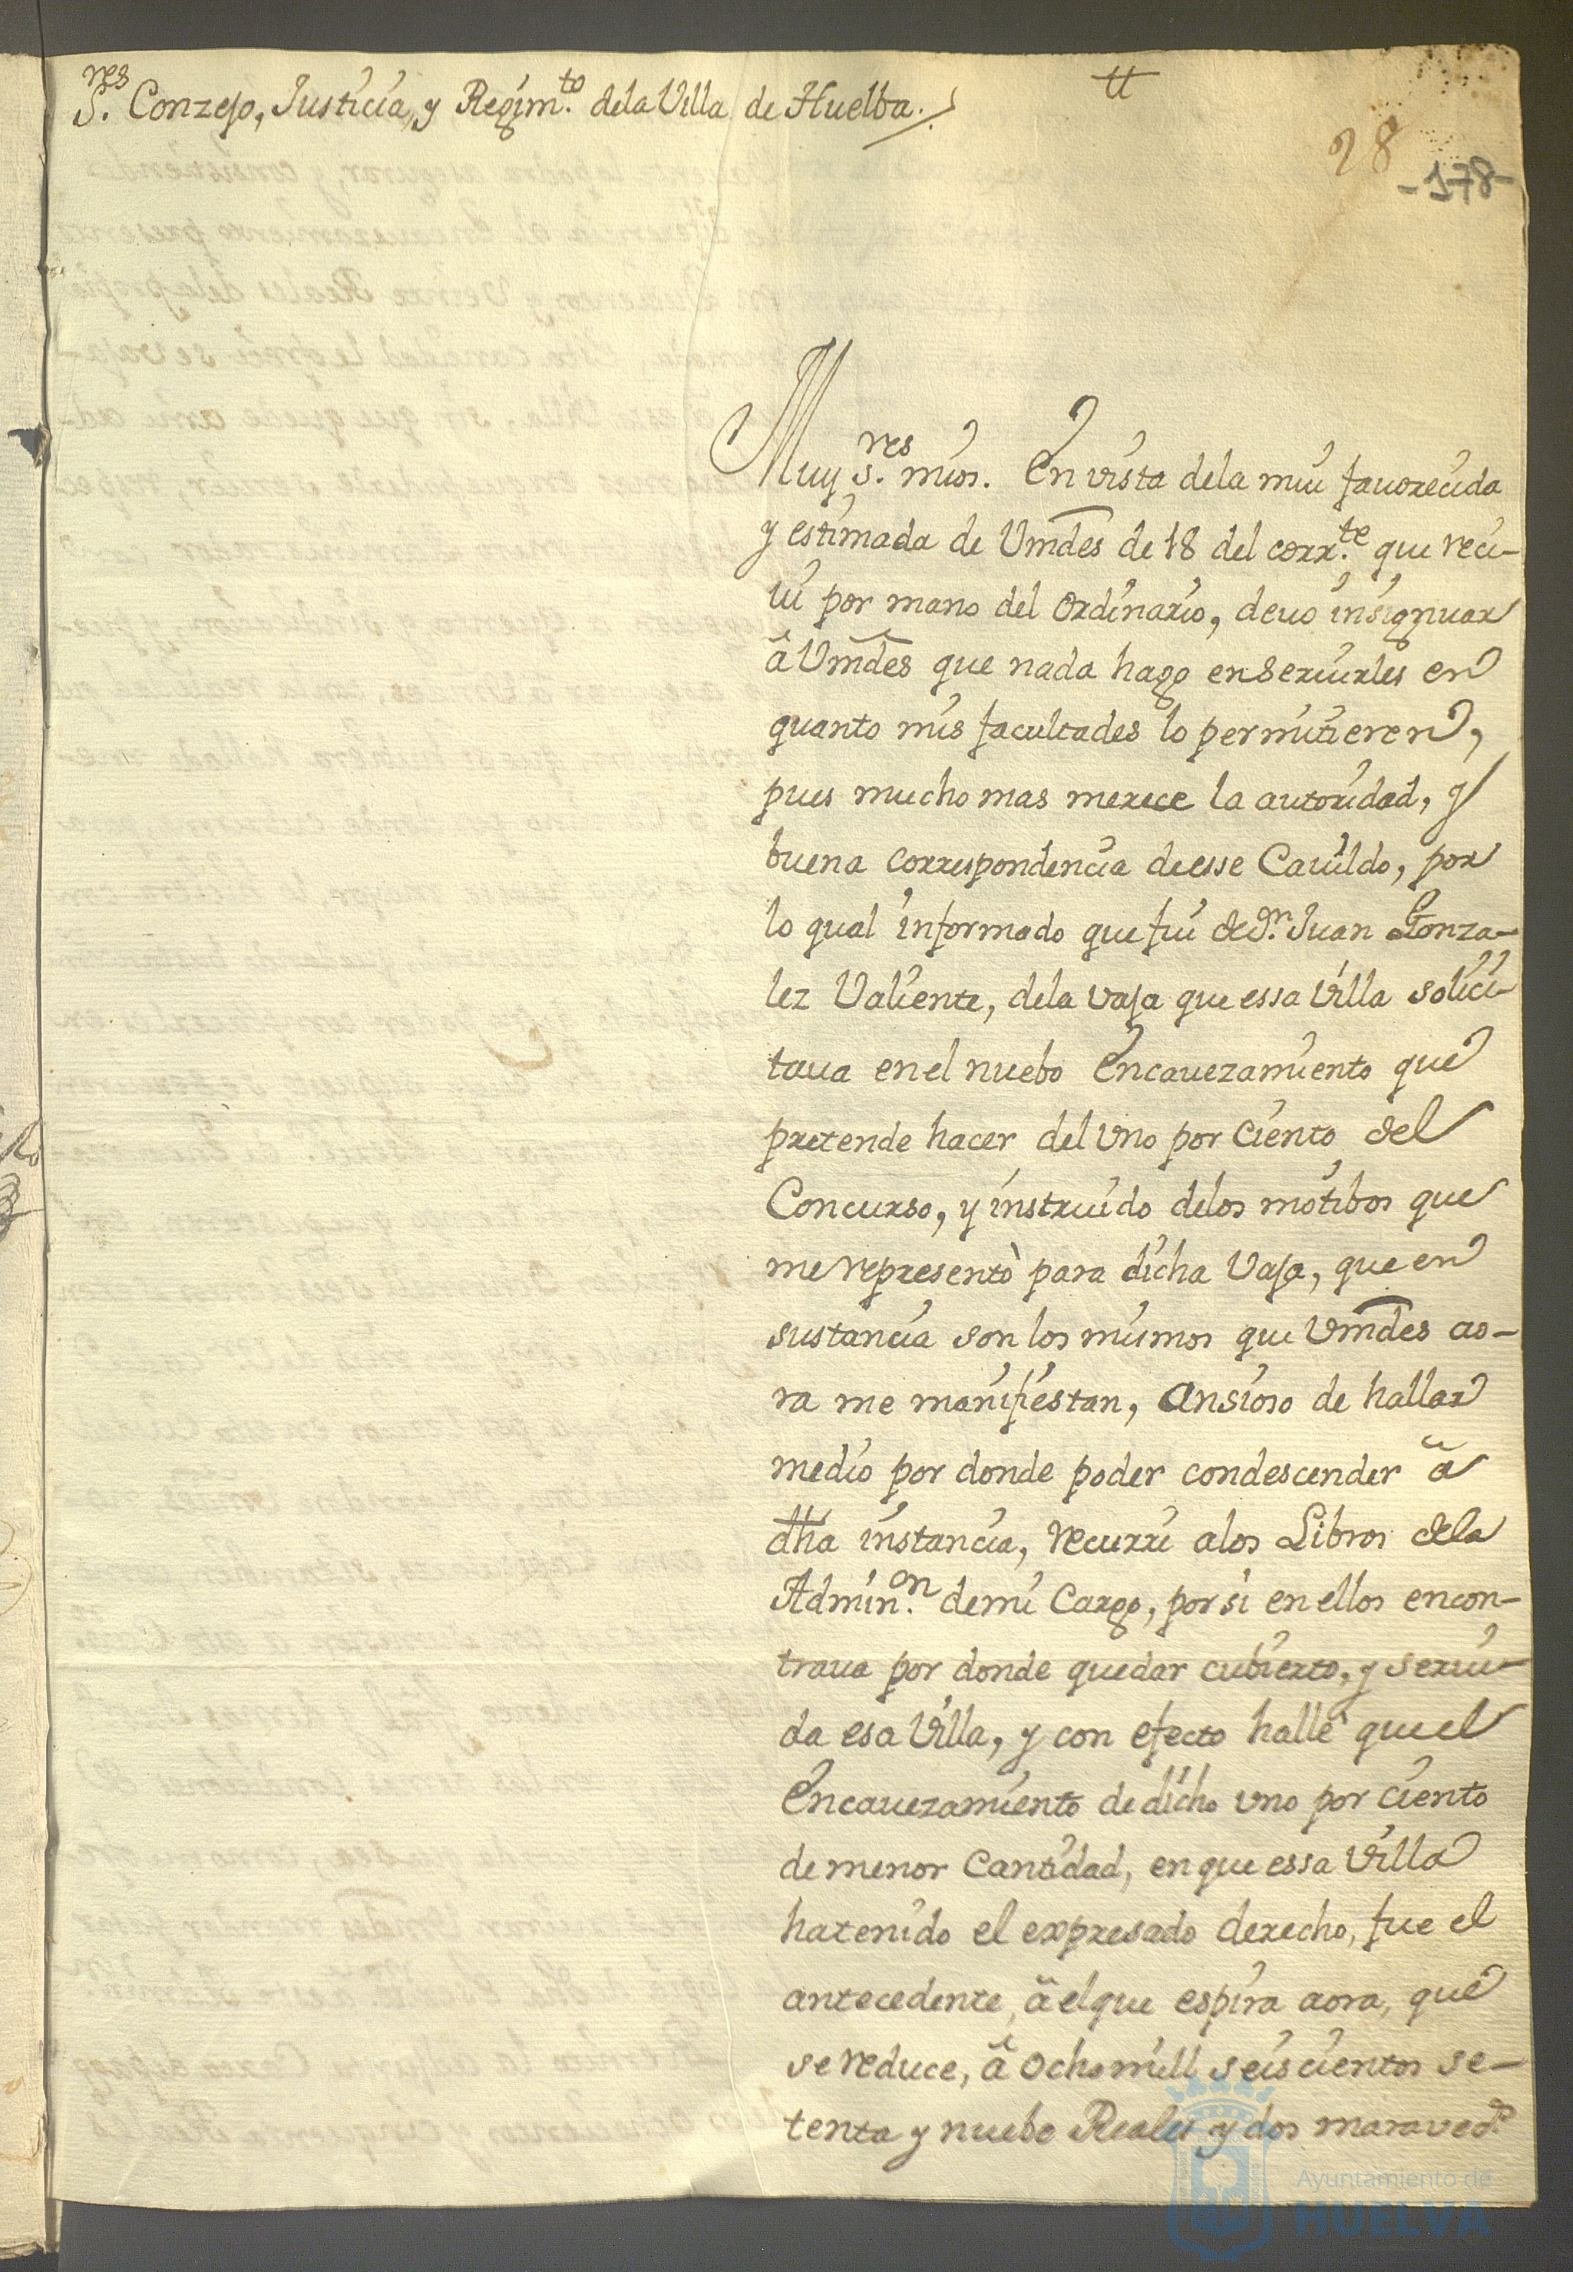 S.res Conzejo, Justicia, y Regim.to dela Villa de Huelba.
tt
28
-178-
Muy S.res mios. En vista dela mui fauorecida
y estimada de Vmdes de 18 del corr.te que reci-
ui por mano del ordinario, deuo insignuar
â Vmdes que nada hago en seruirles en
quanto mis facultades lo permitieren,
pues mucho mas merece la autoridad, y
buena correspondencia de esse Cauildo, por
lo qual informado que fui de D.n Juan Gonza-
lez Valiente, dela vaja que essa Villa solici-
taua en el nuebo Encauezamiento que
pretende hacer del uno por Ciento del
Concurso, y instruido delos motibos que
me representò para dicha Vaja, que en
sustancia son los mismos que Vmdes ao-
ra me manifiestan, Ansioso de hallar
medio por donde poder condescender â
dha instancia, recurri alos Libros dela
Admin.on demi Cargo, por si en ellos encon-
traua por donde quedar cubierto, y serui-
da esa Villa, y con efecto hallè que el
Encauezamiento de dicho uno por Ciento
de menor Cantidad, en que essa Villa
ha tenido el expresado derecho, fue el
antecedente, â el que espira aora, que
se reduce, â ocho mill seiscientos se-
tenta y nuebe Reales y dos maraved.s
Ayuntamiento de
HUELVA